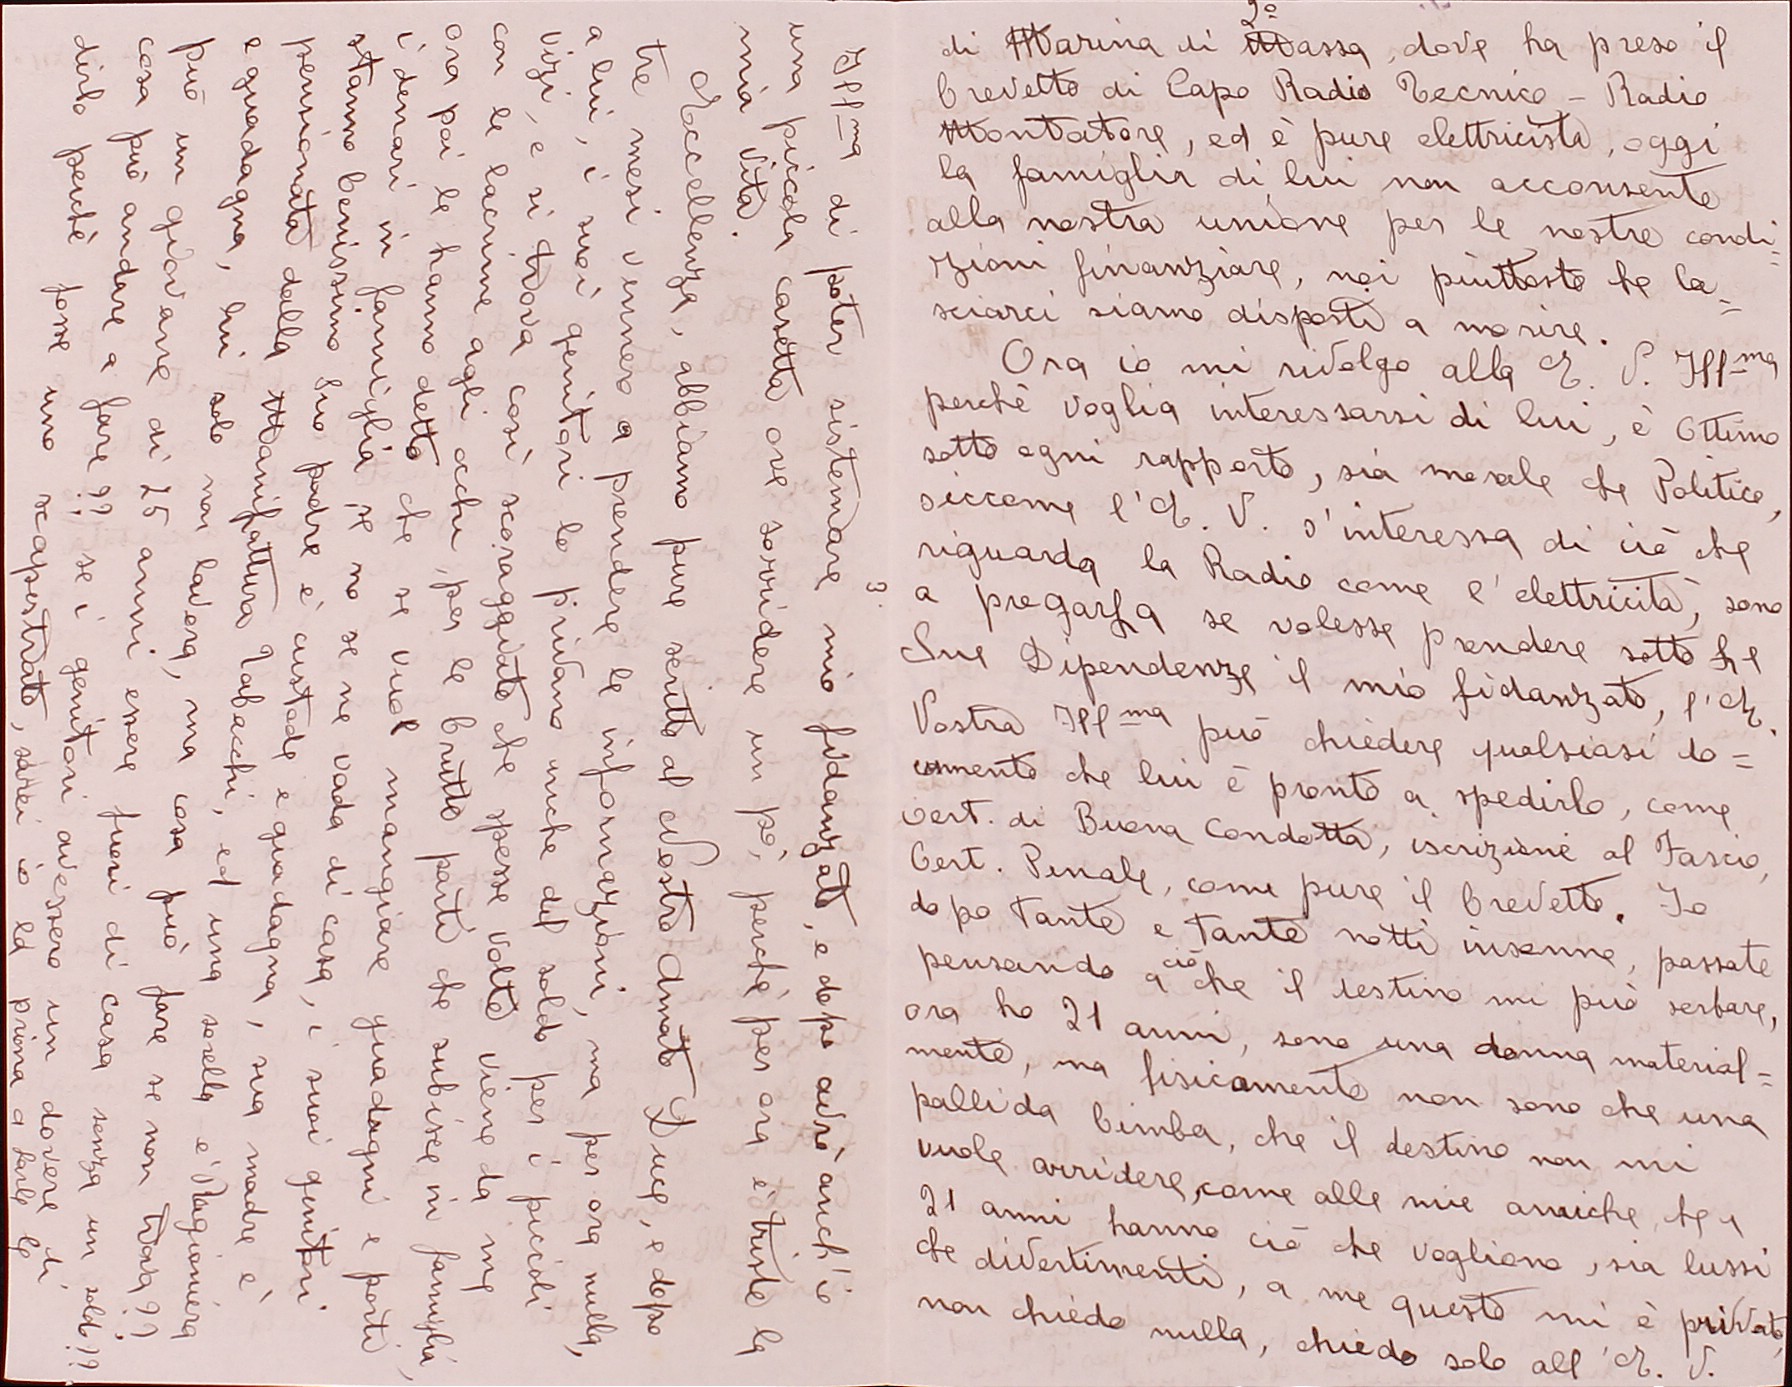 2º
di Marina di Massa, dove ha preso il
brevetto di Capo Radio Tecnico - Radio
Montatore, ed è pure elettricista, oggi
la famiglia di lui non acconsente
alla nostra unione per le nostre condi=
zioni finanziare, noi piuttosto che la=
sciarci siamo disposti a morire.
Ora io mi rivolgo alla E. V. Ill=ma
perchè voglia interessarsi di lui, è ottimo
sotto ogni rapporto, sia morale che Politico,
siccome l'E. V. s'interessa di ciò che
riguarda la Radio come l'elettricità, sono
a pregarla se volesse prendere sotto le
Sue Dipendenze il mio fidanzato, l'E.
Vostra Ill=ma può chiedere qualsiasi do=
cumento che lui è pronto a spedirlo, come
cert. di Buona Condotta, iscrizione al Fascio,
Cert. Penale, come pure il brevetto. Io
dopo tante e tante notti insonne, passate
pensando a ciò che il destino mi può serbare,
ora ho 21 anni, sono una donna material=
mente, ma fisicamente non sono che una
pallida bimba, che il destino non mi
vuole arridere, come alle mie amiche che a
21 anni hanno ciò che vogliono, sia lussi
che divertimenti, a me questo mi è privato,
non chiedo nulla, chiedo solo all'E. V.
3.
Ill=ma di poter sistemare mio fidanzato, e dopo avrò anch'io
una piccola casetta ove sorridere un pò, perchè per ora è triste la
mia vita.
Eccellenza, abbiamo pure scritto al Nostro Amato Duce, e dopo
tre mesi vennero a prendere le informazioni, ma per ora nulla,
a lui, i suoi genitori lo privano anche del soldo per i piccoli
vizi, e si trova così scoraggiato che spesse volte viene da me
con le lacrime agli occhi, per le brutte parti che subisce in famiglia,
ora poi le hanno detto che se vuol mangiare guadagni e porti
i denari in famiglia se no se ne vada di casa, i suoi genitori
stanno benissimo suo padre è custode e guadagna, sua madre è
pensionata della Manifattura Tabacchi, ed una sorella è Ragioniera
e guadagna, lui solo non lavora, ma cosa può fare se non trova??
può un giovane di 25 anni essere fuori di casa senza un soldo??
cosa può andare a fare?? se i genitori avessero un dovere di
dirlo perchè fosse uno scapestrato, sarei io la prima a darle le